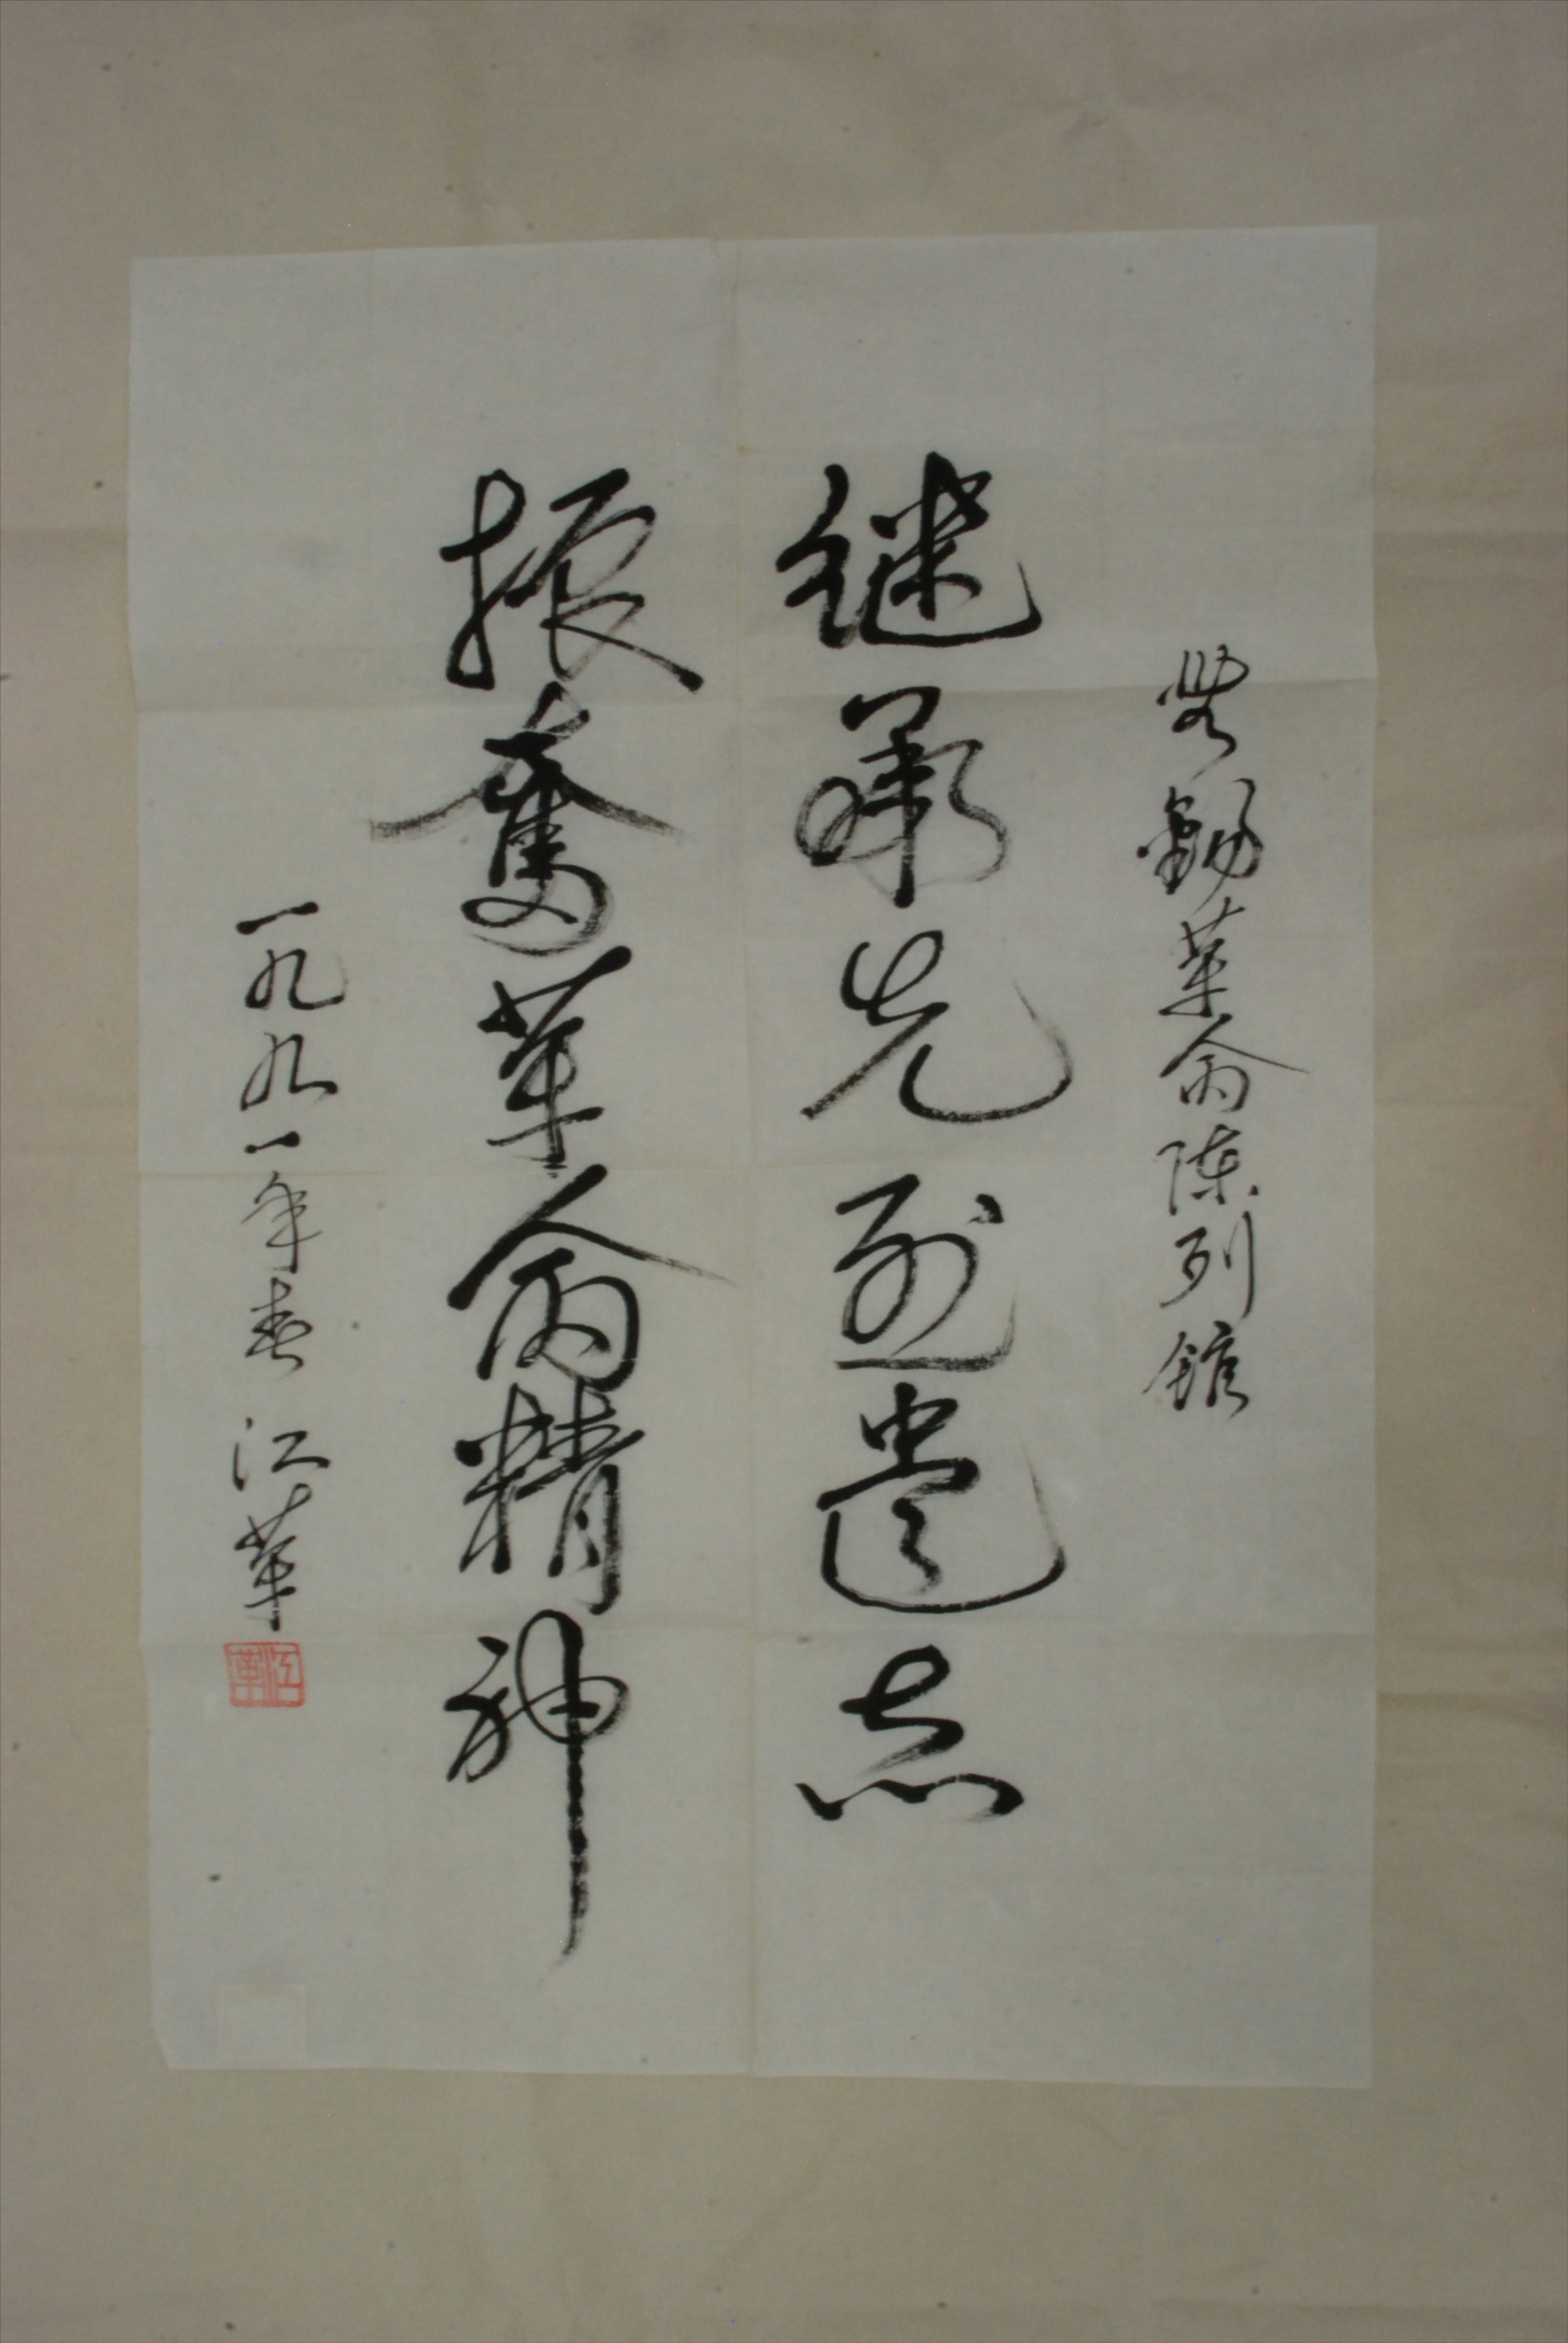 無錫革命陈列馆
继承先烈遗志
振奮革命精神
一九九一年春 江華
江華